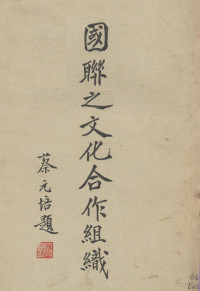 國聯之文化合作組織
蔡元培題